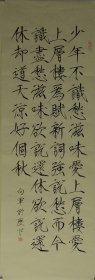 少年不識愁滋味愛上層樓愛
上層樓為賦新詞強說愁而今
識盡愁滋味欲說還休欲說還
休却道天涼好個秋